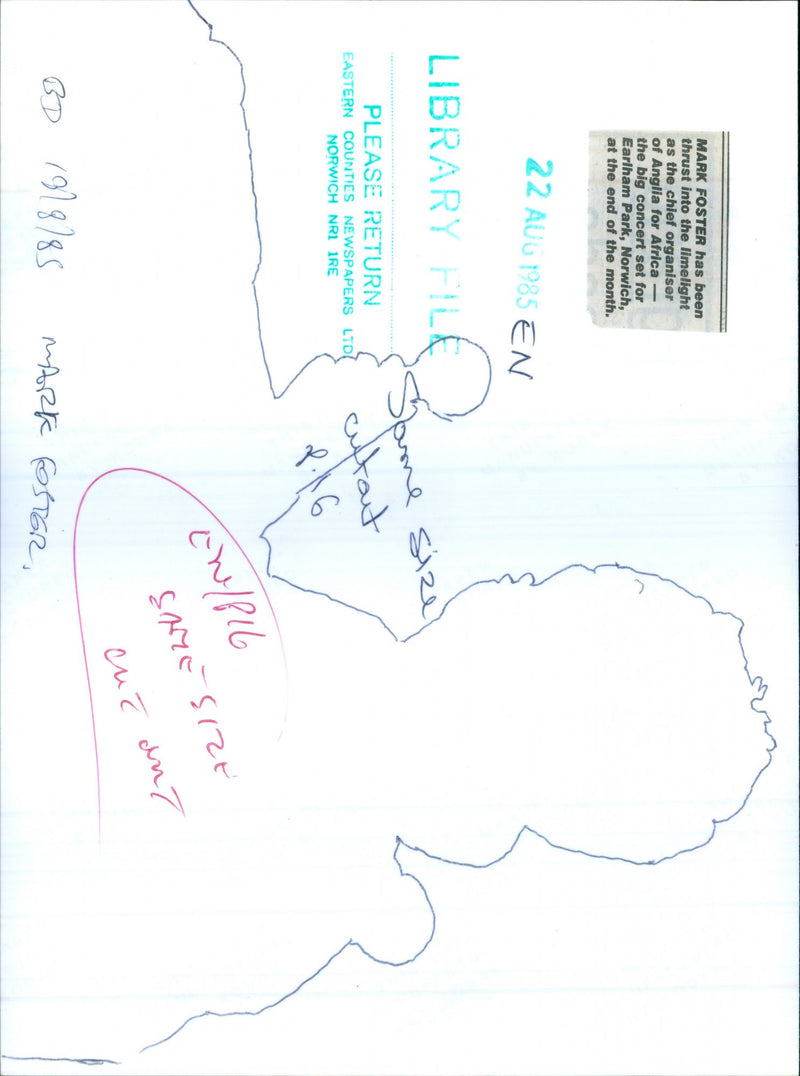 MARK FOSTER has been
thrust into the limelight
as the chief organiser
of Anglia for Africa —
the big concert set for
Earlham Park, Norwich,
at the end of the month.
22 AUG 1985 EN
LIBRARY FILE
PLEASE RETURN
EASTERN COUNTIES NEWSPAPERS LTD
NORWICH NR1 1RE
Same Size
cutout
P.16
EN/P16
SAME SIZE
CUT OUT
BD 19/8/85 MARK FOSTER,